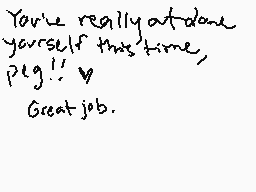 You've really outdone
yourself this time,
peg!! ♥
Great job.